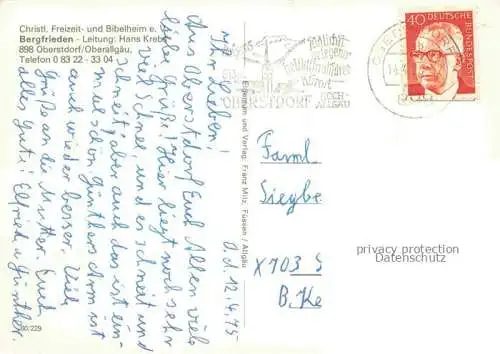 Christl. Freizeit- und Bibelheim e.
Bergfrieden - Leitung: Hans Krebs
898 Oberstdorf/Oberallgäu,
Telefon 0 83 22 - 33 04
a.d. 12.4.75
Ihr Lieben!
Aus Oberstdorf Euch Allen viele
liebe Grüße! Hier liegt noch sehr
viel Schnee und es schneit und
schneit, aber auch das ist ein-
mal schön. Günthers Arm ist
auch wieder besser. Viele
Grüße an die Mutter. Euch
alles Gute! Elfriede u. Günther.
30/229
Eigentum und Verlag: Franz Milz, Füssen / Allgäu
OBERSTDORF
HOCH-
ALLGÄU
40
DEUTSCHE
BUNDESPOST
Faml.
Siegbe
X703
B. Ke
privacy protection
Datenschutz